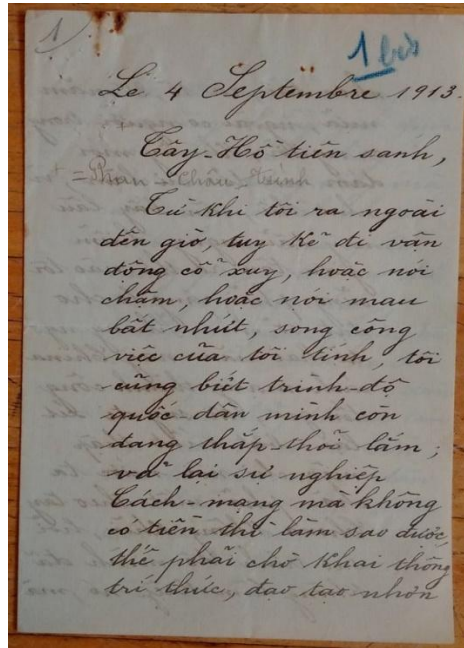 1
1 bis
Le 4 Septembre 1913.
Tây-Hồ tiên sanh,
= Phan - Châu - Trinh
Từ khi tôi ra ngoài
đến giờ, tuy kẻ đi vận
động cổ xuy, hoặc nói
chậm, hoặc nói mau
bất nhứt, song công
việc của tôi tính, tôi
cũng biết trình-độ
quốc-dân mình còn
đang thấp-thỏi lắm;
vả lại sự nghiệp
Cách-mạng mà không
có tiền thì làm sao được,
thế phải chờ khai thông
trí thức, đạo tạo nhơn